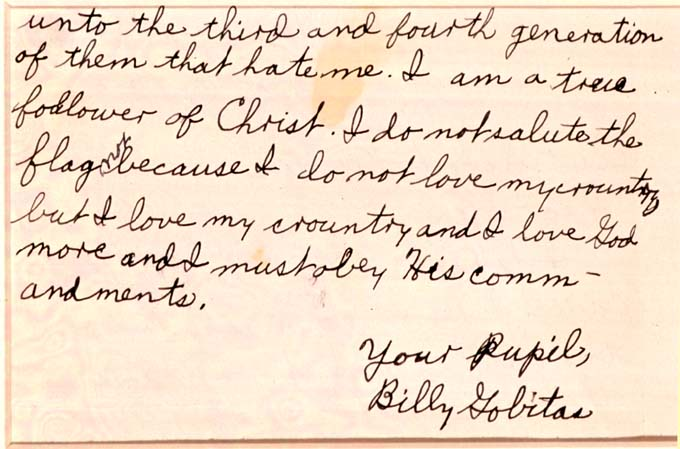 unto the third and fourth generation
of them that hate me. I am a true
follower of Christ. I do not salute the
flag not because I do not love my crountry
but I love my crountry and I love God
more and I must obey His comm-
andments.
Your Pupil,
Billy Gobitas